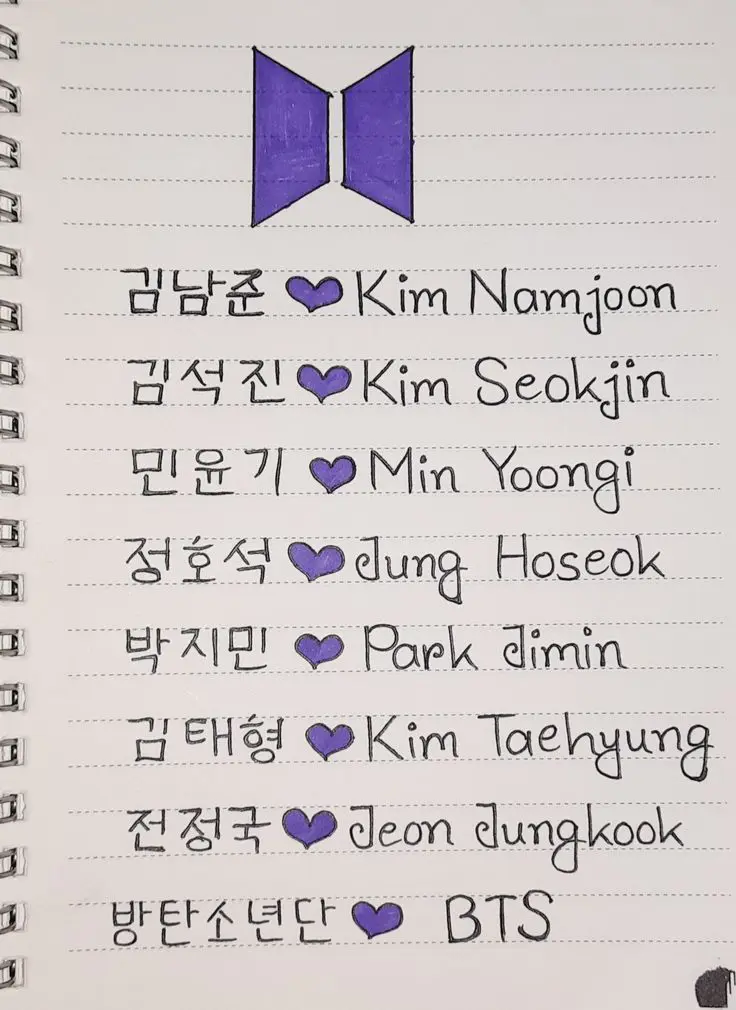 김남준 💜 Kim Namjoon
김석진 💜 Kim Seokjin
민윤기 💜 Min Yoongi
정호석 💜 Jung Hoseok
박지민 💜 Park Jimin
김태형 💜 Kim Taehyung
전정국 💜 Jeon Jungkook
방탄소년단 💜 BTS